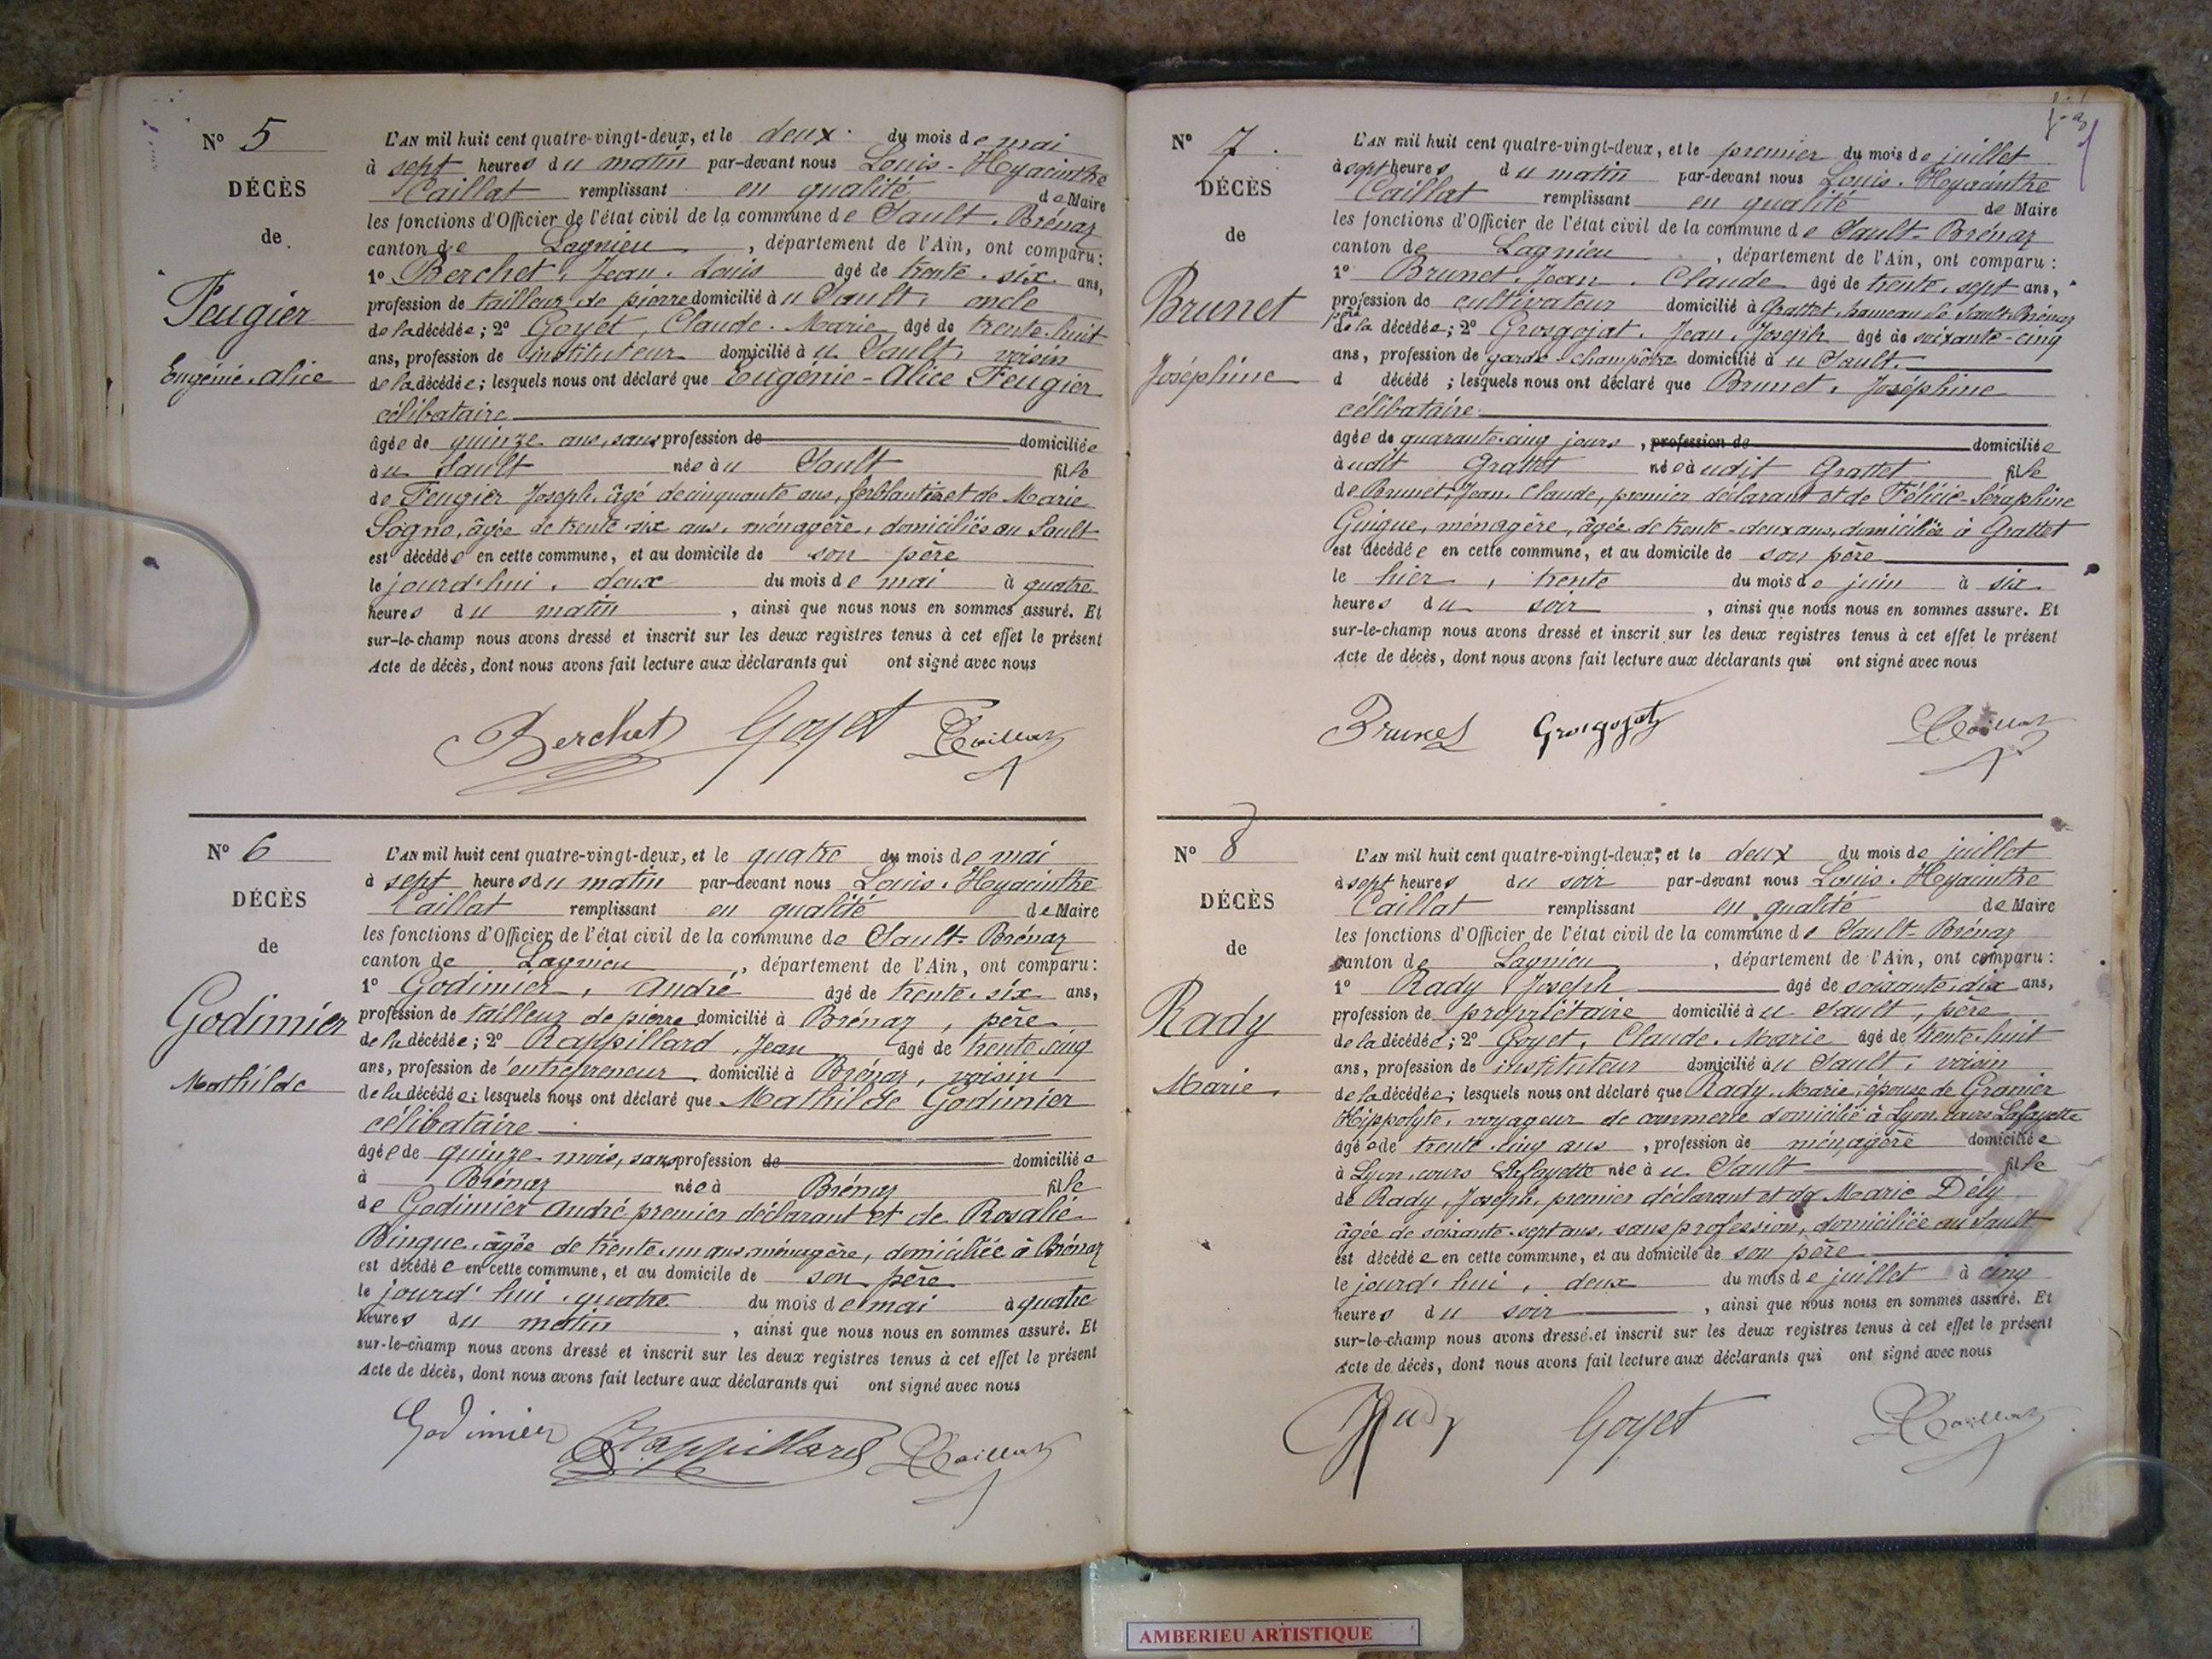 N° 5
DÉCÈS
de
Feugier
Eugénie-Alice
L'AN mil huit cent quatre-vingt-deux, et le deux du mois de mai
à sept heures du matin par-devant nous Louis-Hyacinthe
Caillat remplissant en qualité de Maire
les fonctions d'Officier de l'état civil de la commune de Sault-Brénaz
canton de Lagnieu, département de l'Ain, ont comparu:
1° Berchet, Jean-Louis âgé de trente-six ans,
profession de tailleur de pierre domicilié à u Sault, oncle
de la décédée; 2° Goyet, Claude-Marie âgé de trente-huit
ans, profession de instituteur domicilié à u Sault, voisin
de la décédée; lesquels nous ont déclaré que Eugénie-Alice Feugier
célibataire
âgée de quinze ans, sans profession de domiciliée
à u Sault née à u Sault fille
de Feugier Joseph, âgé de cinquante ans, ferblantier et de Marie
Sogno, âgée de trente-six ans, ménagère, domiciliés au Sault
est décédée en cette commune, et au domicile de son père
le jourd'hui, deux du mois de mai à quatre
heures du matin, ainsi que nous nous en sommes assuré. Et
sur-le-champ nous avons dressé et inscrit sur les deux registres tenus à cet effet le présent
Acte de décès, dont nous avons fait lecture aux déclarants qui ont signé avec nous
Berchet Goyet Caillat
N° 6
DÉCÈS
de
Godimier
Mathilde
L'AN mil huit cent quatre-vingt-deux, et le quatre du mois de mai
à sept heures du matin par-devant nous Louis-Hyacinthe
Caillat remplissant en qualité de Maire
les fonctions d'Officier de l'état civil de la commune de Sault-Brénaz
canton de Lagnieu, département de l'Ain, ont comparu:
1° Godimier, André âgé de trente-six ans,
profession de tailleur de pierre domicilié à Brénaz, père
de la décédée; 2° Rappillard, Jean âgé de trente-cinq
ans, profession de entrepreneur domicilié à Brénaz, voisin
de la décédée; lesquels nous ont déclaré que Mathilde Godimier
célibataire
âgée de quinze mois, sans profession de domiciliée
à Brénaz née à Brénaz fille
de Godimier André premier déclarant et de Rosalie
Binque, âgée de trente-un ans ménagère, domiciliée à Brénaz
est décédée en cette commune, et au domicile de son père
le jourd'hui, quatre du mois de mai à quatre
heures du matin, ainsi que nous nous en sommes assuré. Et
sur-le-champ nous avons dressé et inscrit sur les deux registres tenus à cet effet le présent
Acte de décès, dont nous avons fait lecture aux déclarants qui ont signé avec nous
Godimier Rappillard Caillat
N° 7
DÉCÈS
de
Brunet
Joséphine
L'AN mil huit cent quatre-vingt-deux, et le premier du mois de juillet
à sept heures du matin par-devant nous Louis-Hyacinthe
Caillat remplissant en qualité de Maire
les fonctions d'Officier de l'état civil de la commune de Sault-Brénaz
canton de Lagnieu, département de l'Ain, ont comparu:
1° Brunet, Jean-Claude âgé de trente-sept ans,
profession de cultivateur domicilié à Grattet, hameau de Sault-Brénaz
père de la décédée; 2° Grosgojat, Jean-Joseph âgé de soixante-cinq
ans, profession de garde-champêtre domicilié à u Sault
d décédé; lesquels nous ont déclaré que Brunet, Joséphine
célibataire
âgée de quarante-cinq jours, profession de domiciliée
à udit Grattet née à udit Grattet fille
de Brunet, Jean-Claude, premier déclarant et de Félicie-Séraphine
Guigue, ménagère, âgée de trente-deux ans, domiciliée à Grattet
est décédée en cette commune, et au domicile de son père
le hier, trente du mois de juin à six
heures du soir, ainsi que nous nous en sommes assuré. Et
sur-le-champ nous avons dressé et inscrit sur les deux registres tenus à cet effet le présent
Acte de décès, dont nous avons fait lecture aux déclarants qui ont signé avec nous
Brunet Grosgojat Caillat
N° 8
DÉCÈS
de
Rady
Marie
L'AN mil huit cent quatre-vingt-deux, et le deux du mois de juillet
à sept heures du soir par-devant nous Louis-Hyacinthe
Caillat remplissant en qualité de Maire
les fonctions d'Officier de l'état civil de la commune de Sault-Brénaz
canton de Lagnieu, département de l'Ain, ont comparu:
1° Rady Joseph âgé de soixante-dix ans,
profession de propriétaire domicilié à u Sault, père
de la décédée; 2° Goyet, Claude-Marie âgé de trente-huit
ans, profession de instituteur domicilié à u Sault, voisin
de la décédée; lesquels nous ont déclaré que Rady, Marie, épouse de Granier
Hippolyte, voyageur de commerce domicilié à Lyon, cours Lafayette
âgée de trente-cinq ans, profession de ménagère domiciliée
à Lyon, cours Lafayette née à u Sault fille
de Rady, Joseph, premier déclarant et de Marie Dély
âgée de soixante-sept ans, sans profession, domiciliée au Sault
est décédée en cette commune, et au domicile de son père
le jourd'hui, deux du mois de juillet à cinq
heures du soir, ainsi que nous nous en sommes assuré. Et
sur-le-champ nous avons dressé et inscrit sur les deux registres tenus à cet effet le présent
Acte de décès, dont nous avons fait lecture aux déclarants qui ont signé avec nous
Rady Goyet Caillat
AMBERIEU ARTISTIQUE